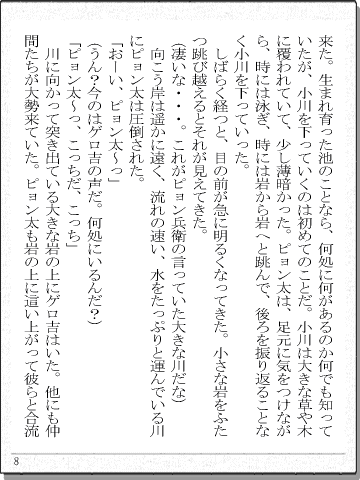 来た。生まれ育った池のことなら、何処に何があるのか何でも知って
いたが、小川を下っていくのは初めてのことだ。小川は大きな草や木
に覆われていて、少し薄暗かった。ピョン太は、足元に気をつけなが
ら、時には泳ぎ、時には岩から岩へと跳んで、後ろを振り返ることな
く小川を下っていった。
しばらく経つと、目の前が急に明るくなってきた。小さな岩をふた
つ跳び越えるとそれが見えてきた。
(凄いな・・・。これがピョン兵衛の言っていた大きな川だな)
向こう岸は遥かに遠く、流れの速い、水をたっぷりと運んでいる川
にピョン太は圧倒された。
「おーい、ピョン太〜っ」
(うん？今のはゲロ吉の声だ。何処にいるんだ？)
「ピョン太〜っ、こっちだ、こっち」
川に向かって突き出ている大きな岩の上にゲロ吉はいた。他にも仲
間たちが大勢来ていた。ピョン太も岩の上に這い上がって彼らと合流
8